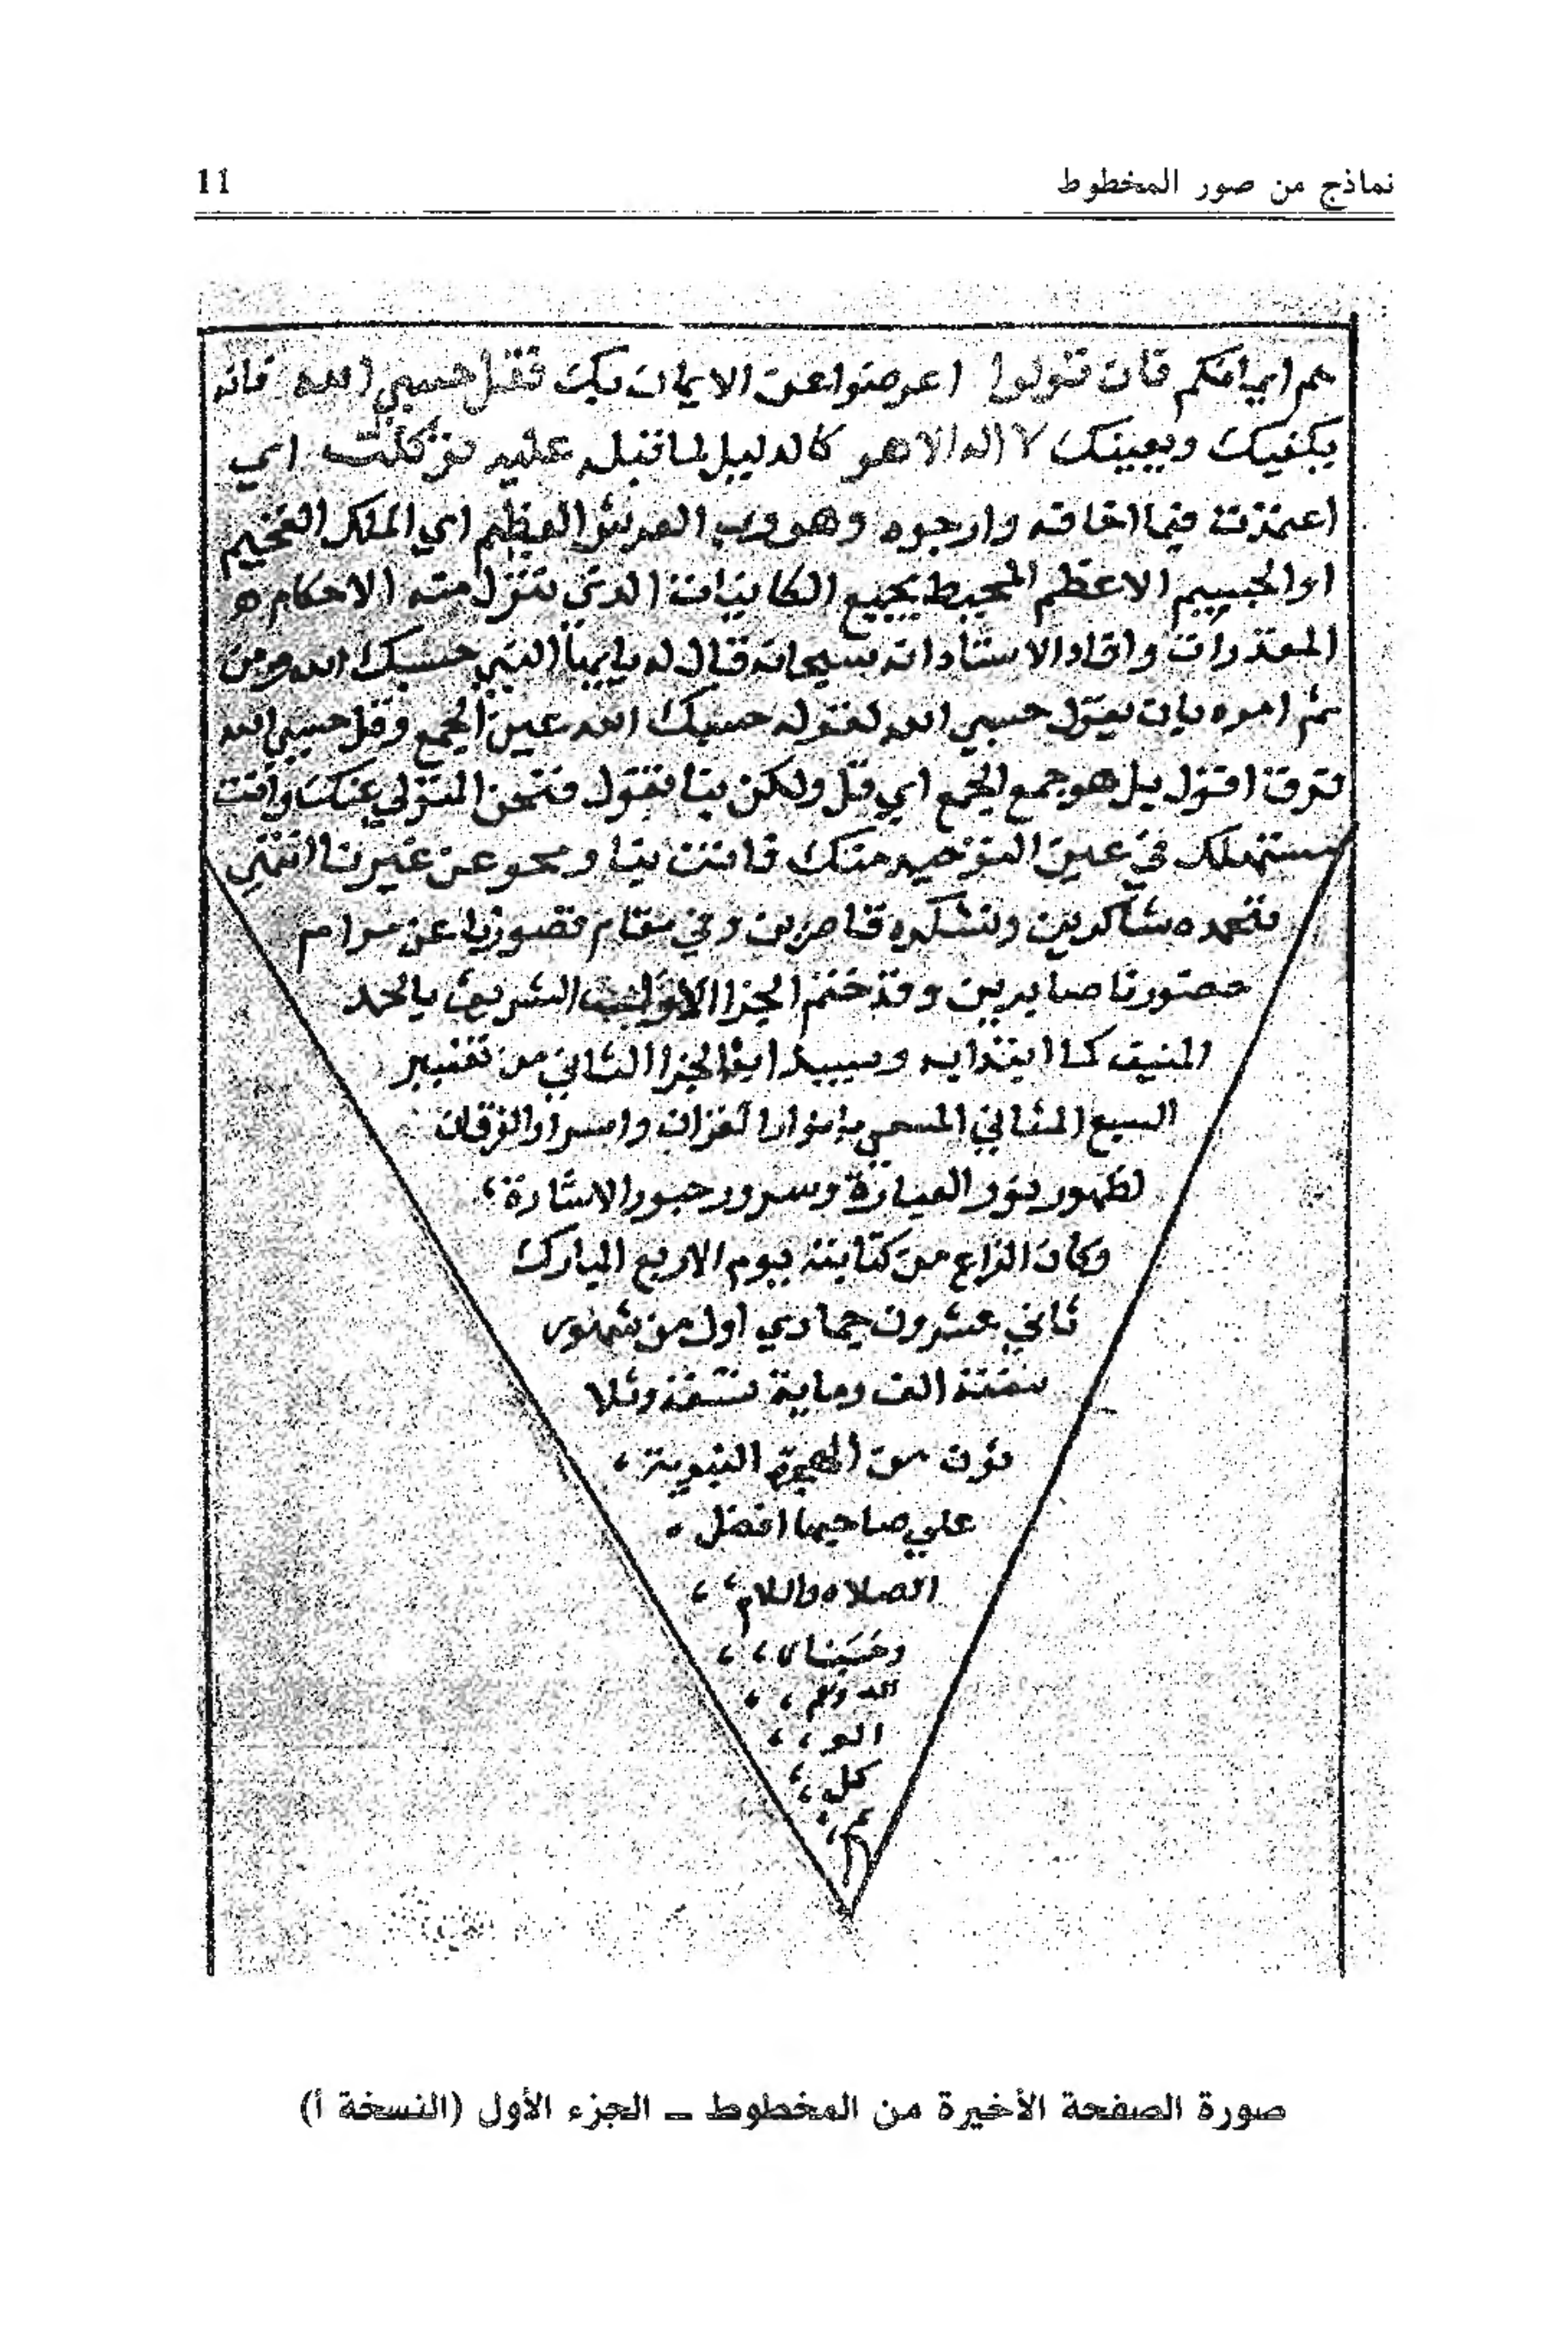 نماذج من صور المخطوط
11
فان تولوا اعرضوا عن الايمان بك فقل حسبي الله فانه
يكفيك ويعينك لا اله الا هو كالدليل لما قبله عليه توكلت اي
اعتمزت فيما اخافه وارجوه وهو رب العرش العظيم اي الملك الفخيم
او الجسيم الاعظم المحيط بجميع الكاينات الذي تنزل منه الاحكام
المقدرات وافاد الاستاد انه سبحانه قال له يا ايها النبي حسبك الله ومن
ثم امره بان يقول حسبي الله لقوله حسبك الله عين الجمع وقل حسبي الله
فرق اقول بل هو جمع الجمع اي قل ولكن بنا فقول فنحن المتولي عنك وانت
مستهلك في عين التوحيد منك فانت بنا ومحو عن غيرنا انتهي
نحمده شاكرين ونشكره قاصرين وفي مقام قصورنا عن مرام
حضورنا صابرين وقد ختم الجزا الاول الشريف بالحمد
المنيف كما ابتدا به وسيبدا الجزا الثاني من تفسير
السبع المثاني المسمي بانوار القران واسرار الفرقان
لظهور نور العبارة وسرور حبور الاشارة
وكان الراع من كتابته يوم الاربع المبارك
ثاني عشرون جمادي اول من شهور
سنة الف وماية تسعة وثلا
ثون من الهجرة النبوية
علي صاحبها افضل
الصلاه والسلام
وحسبنا
الله ونعم
الو
كل
صورة الصفحة الأخيرة من المخطوط - الجزء الأول (النسخة أ)